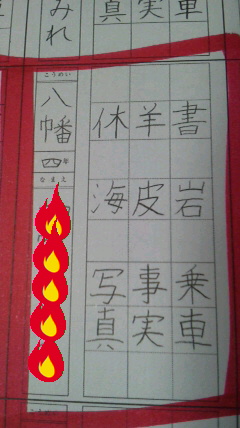 真実車
みれ
書岩乗車
羊皮事実
休海写真
こうめい
八幡
四年
なまえ